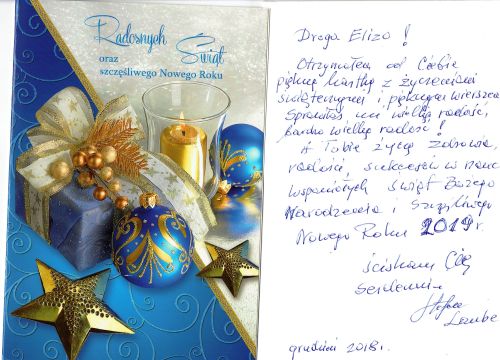 Radosnych Świąt
oraz
szczęśliwego Nowego Roku
Droga Elizo!
Otrzymałam od Ciebie
piękną kartkę z życzeniami
świątecznymi i pięknym wierszem
Sprawiłaś mi wielką radość,
bardzo wielką radość!
A Tobie życzę zdrowia,
radości, sukcesów w pracy
wspaniałych Świąt Bożego
Narodzenia i Szczęśliwego
Nowego Roku 2019 r.
ściskam Cię
Serdecznie
grudzień 2018 r.